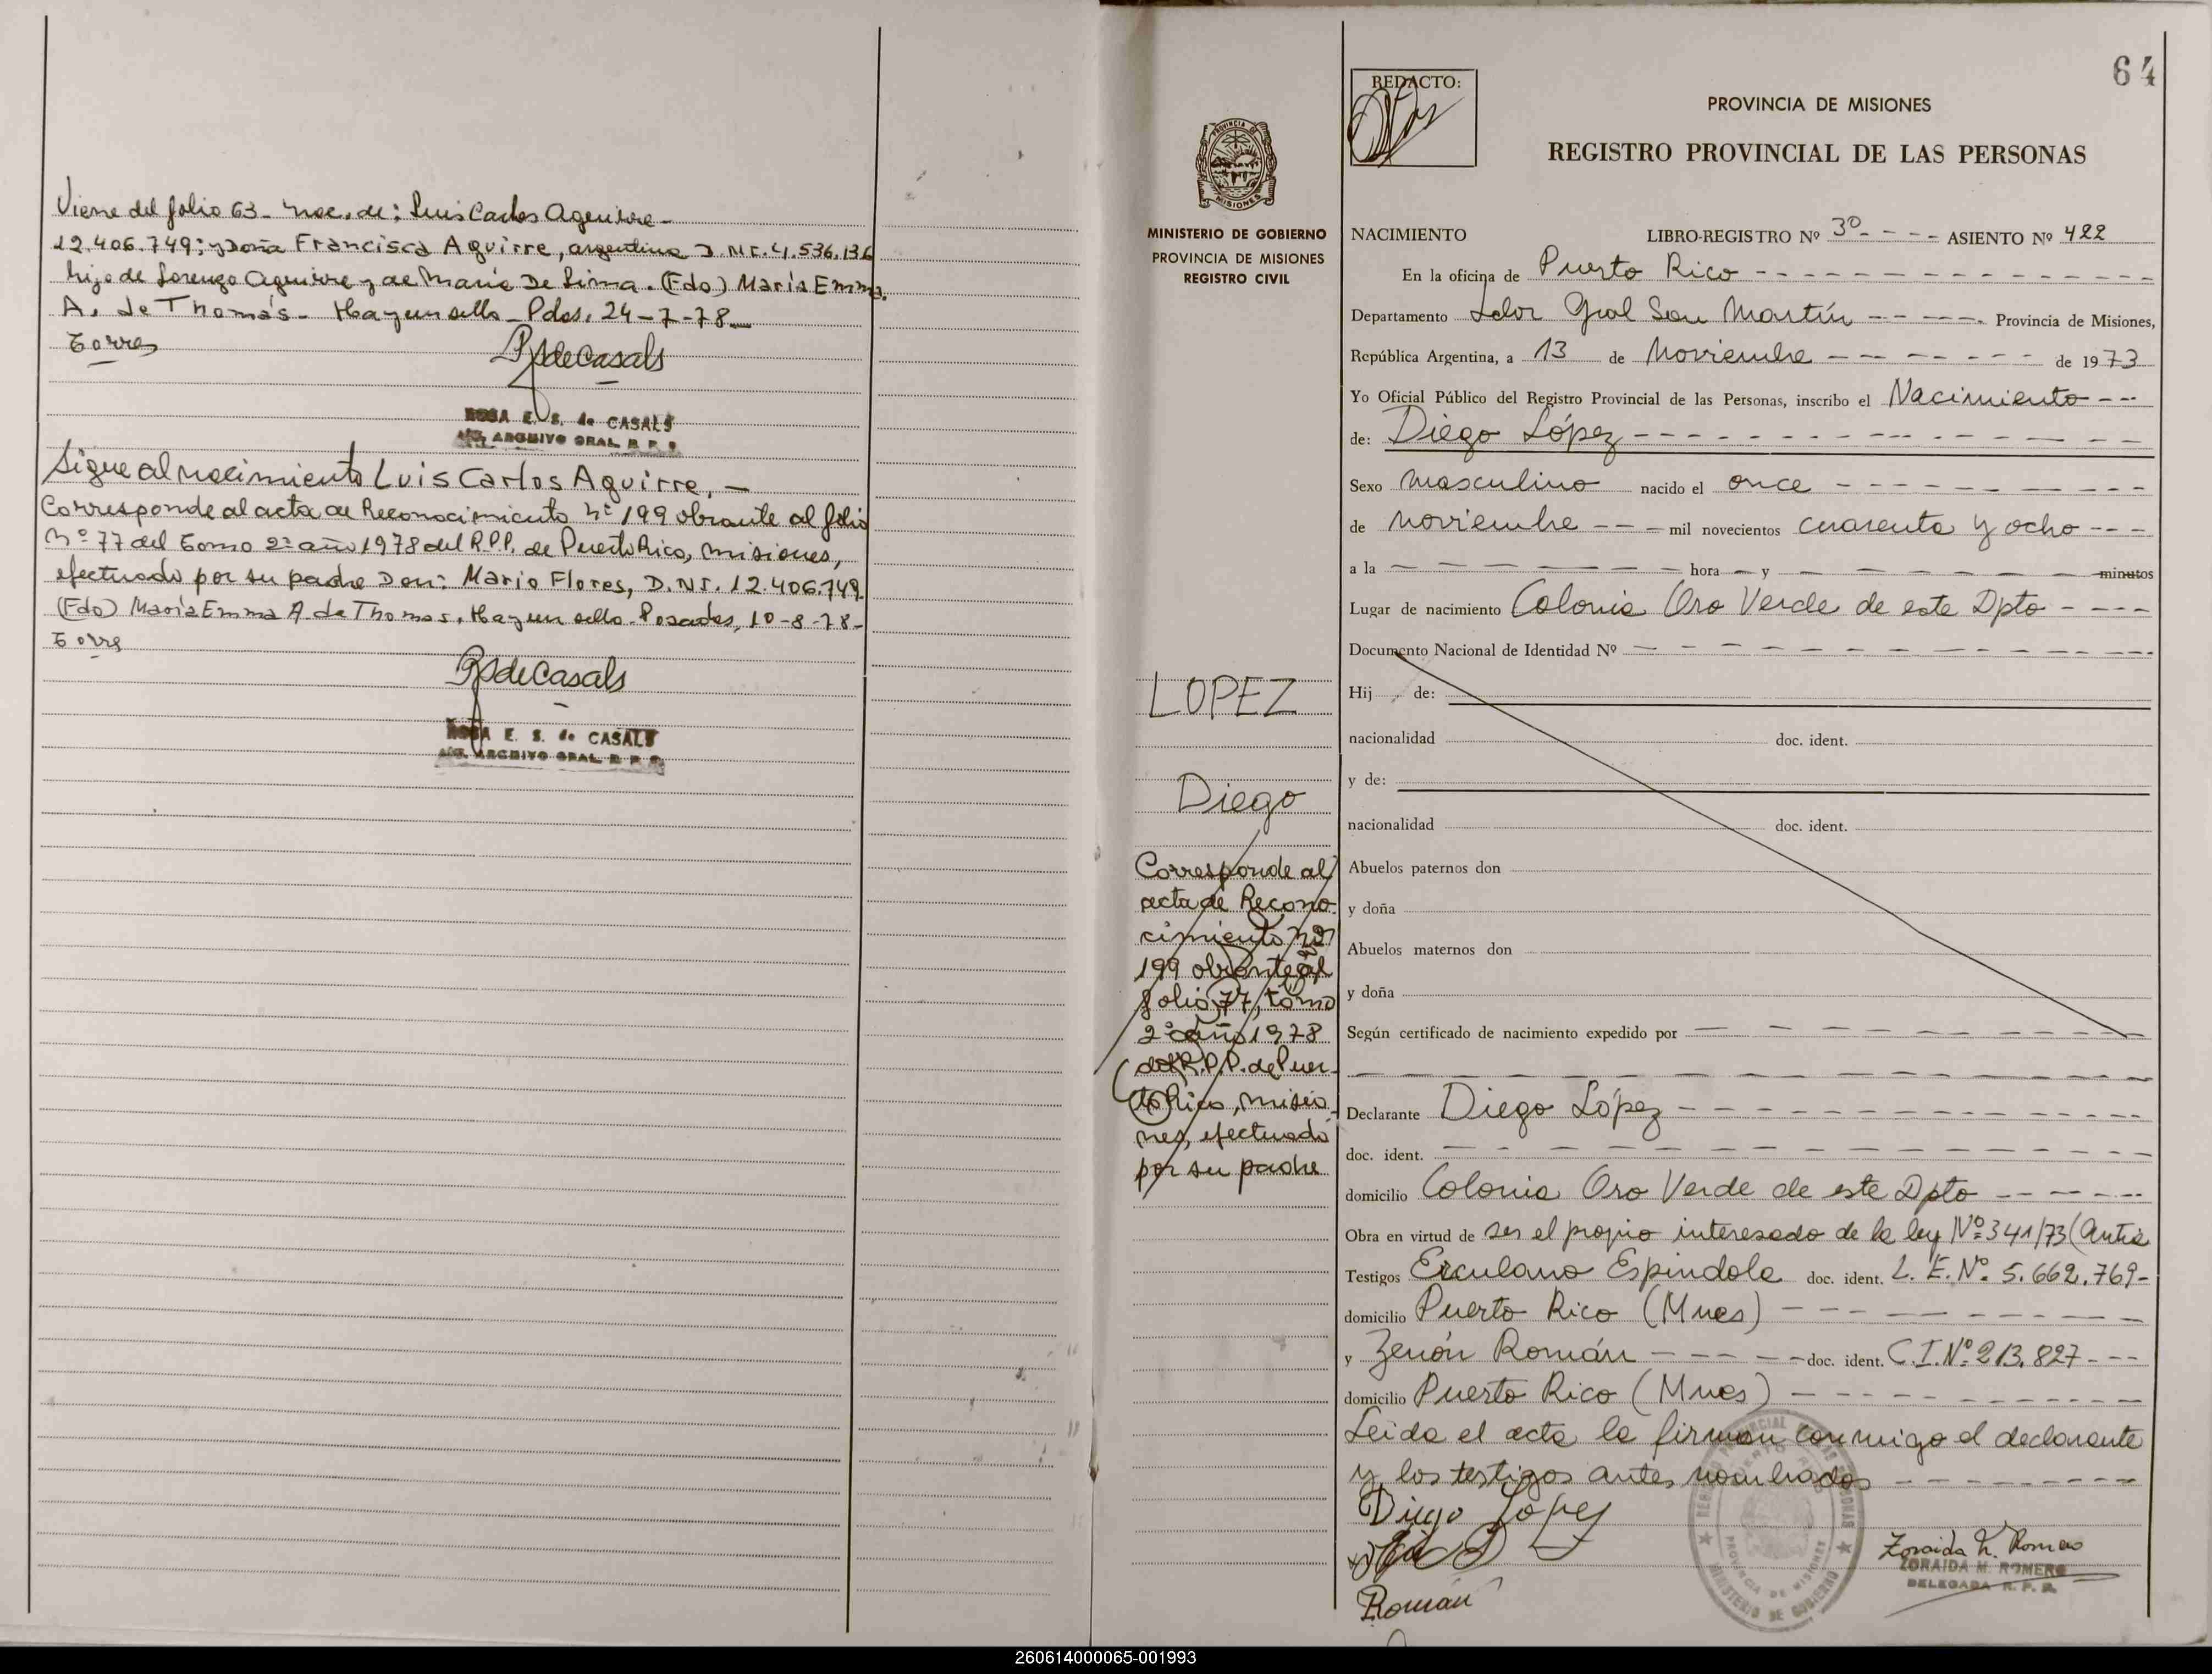 Viene del folio 63 - Nac. de: Luis Carlos Aguirre -
12.406.749; y Doña Francisca Aguirre, argentina D.N.I. 4.536.136
hija de Lorenzo Aguirre y de María De Lima. (Fdo) María Emma
A. de Thomas - Hay un sello - Pdas, 24-7-78
Torres
RSdeCasals
ROSA E. S. de CASALS
ARCHIVO GRAL. R. P. P.
Sigue al nacimiento Luis Carlos Aguirre. -
Corresponde al acta de Reconocimiento Nº 199 obrante al folio
Nº 77 del Tomo 2º año 1978 del R.P.P. de Puerto Rico, Misiones,
efectuado por su padre Don: Mario Flores, D.N.I. 12.406.749.
(Fdo) María Emma A. de Thomas. Hay un sello - Posadas, 10-8-78-
Torres
RSdeCasals
ROSA E. S. de CASALS
ARCHIVO GRAL. R. P. P.
64
REDACTO:
PROVINCIA DE MISIONES
REGISTRO PROVINCIAL DE LAS PERSONAS
PROVINCIA DE
MISIONES
MINISTERIO DE GOBIERNO
PROVINCIA DE MISIONES
REGISTRO CIVIL
LOPEZ
Diego
Corresponde al
acta de Recono-
cimiento Nº
199 obrante al
folio 77, tomo
2º año 1978
del R.P.P. de Puer-
to Rico, Misio-
nes, efectuado
por su padre
NACIMIENTO LIBRO-REGISTRO Nº 3º - - - - ASIENTO Nº 422
En la oficina de Puerto Rico - - - - - - - - - - - - - - -
Departamento Ldor Gral San Martín - - - - - . Provincia de Misiones,
República Argentina, a 13 de Noviembre - - - - - - - de 1973
Yo Oficial Público del Registro Provincial de las Personas, inscribo el Nacimiento - - -
de: Diego López - - - - - - - - - - - - - - -
Sexo Masculino nacido el once - - - - - - - - -
de noviembre - - - mil novecientos cuarenta y ocho - - -
a la - - - - - - - - hora - y - - - - - - minutos
Lugar de nacimiento Colonia Oro Verde de este Dpto - - - -
Documento Nacional de Identidad Nº - - - - - - - - - - - -
Hij de:
nacionalidad doc. ident.
y de:
nacionalidad doc. ident.
Abuelos paternos don
y doña
Abuelos maternos don
y doña
Según certificado de nacimiento expedido por - - - - - - - - -
- - - - - - - - - - - - - - - -
Declarante Diego López - - - - - - - - - - - - -
doc. ident. - - - - - - - - - - - - - -
domicilio Colonia Oro Verde de este Dpto - - - - - -
Obra en virtud de ser el propio interesado de la ley Nº 341/73 (Antia
Testigos Erculano Espindola doc. ident. L. E. Nº. 5.662.769-
domicilio Puerto Rico (Mnes) - - - - - - - - - -
y Zenón Román - - - - - doc. ident. C.I. Nº. 213.827 - - -
domicilio Puerto Rico (Mnes) - - - - - - - - - -
Leida el acta la firman conmigo el declarante
y los testigos antes nombrados - - - - - - - -
Diego Lopez
Román
Zoraida M. Romero
ZORAIDA M. ROMERO
DELEGADA R. P. P.
PROVINCIA DE MISIONES
MINISTERIO DE GOBIERNO
260614000065-001993